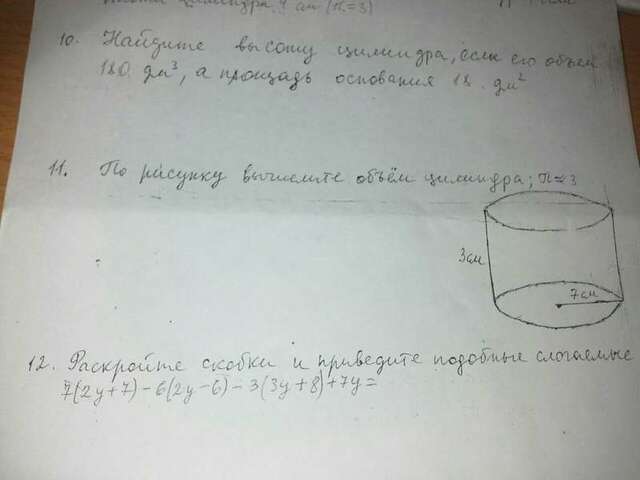 цилиндра 4 см (π=3)
10. Найдите высоту цилиндра, если его объём
180 дм³, а площадь основания 18 дм²
11. По рисунку вычислите объём цилиндра; π≈3
3см
7см
12. Раскройте скобки и приведите подобные слогаемые
7(2у+7)-6(2у-6)-3(3у+8)+7у=